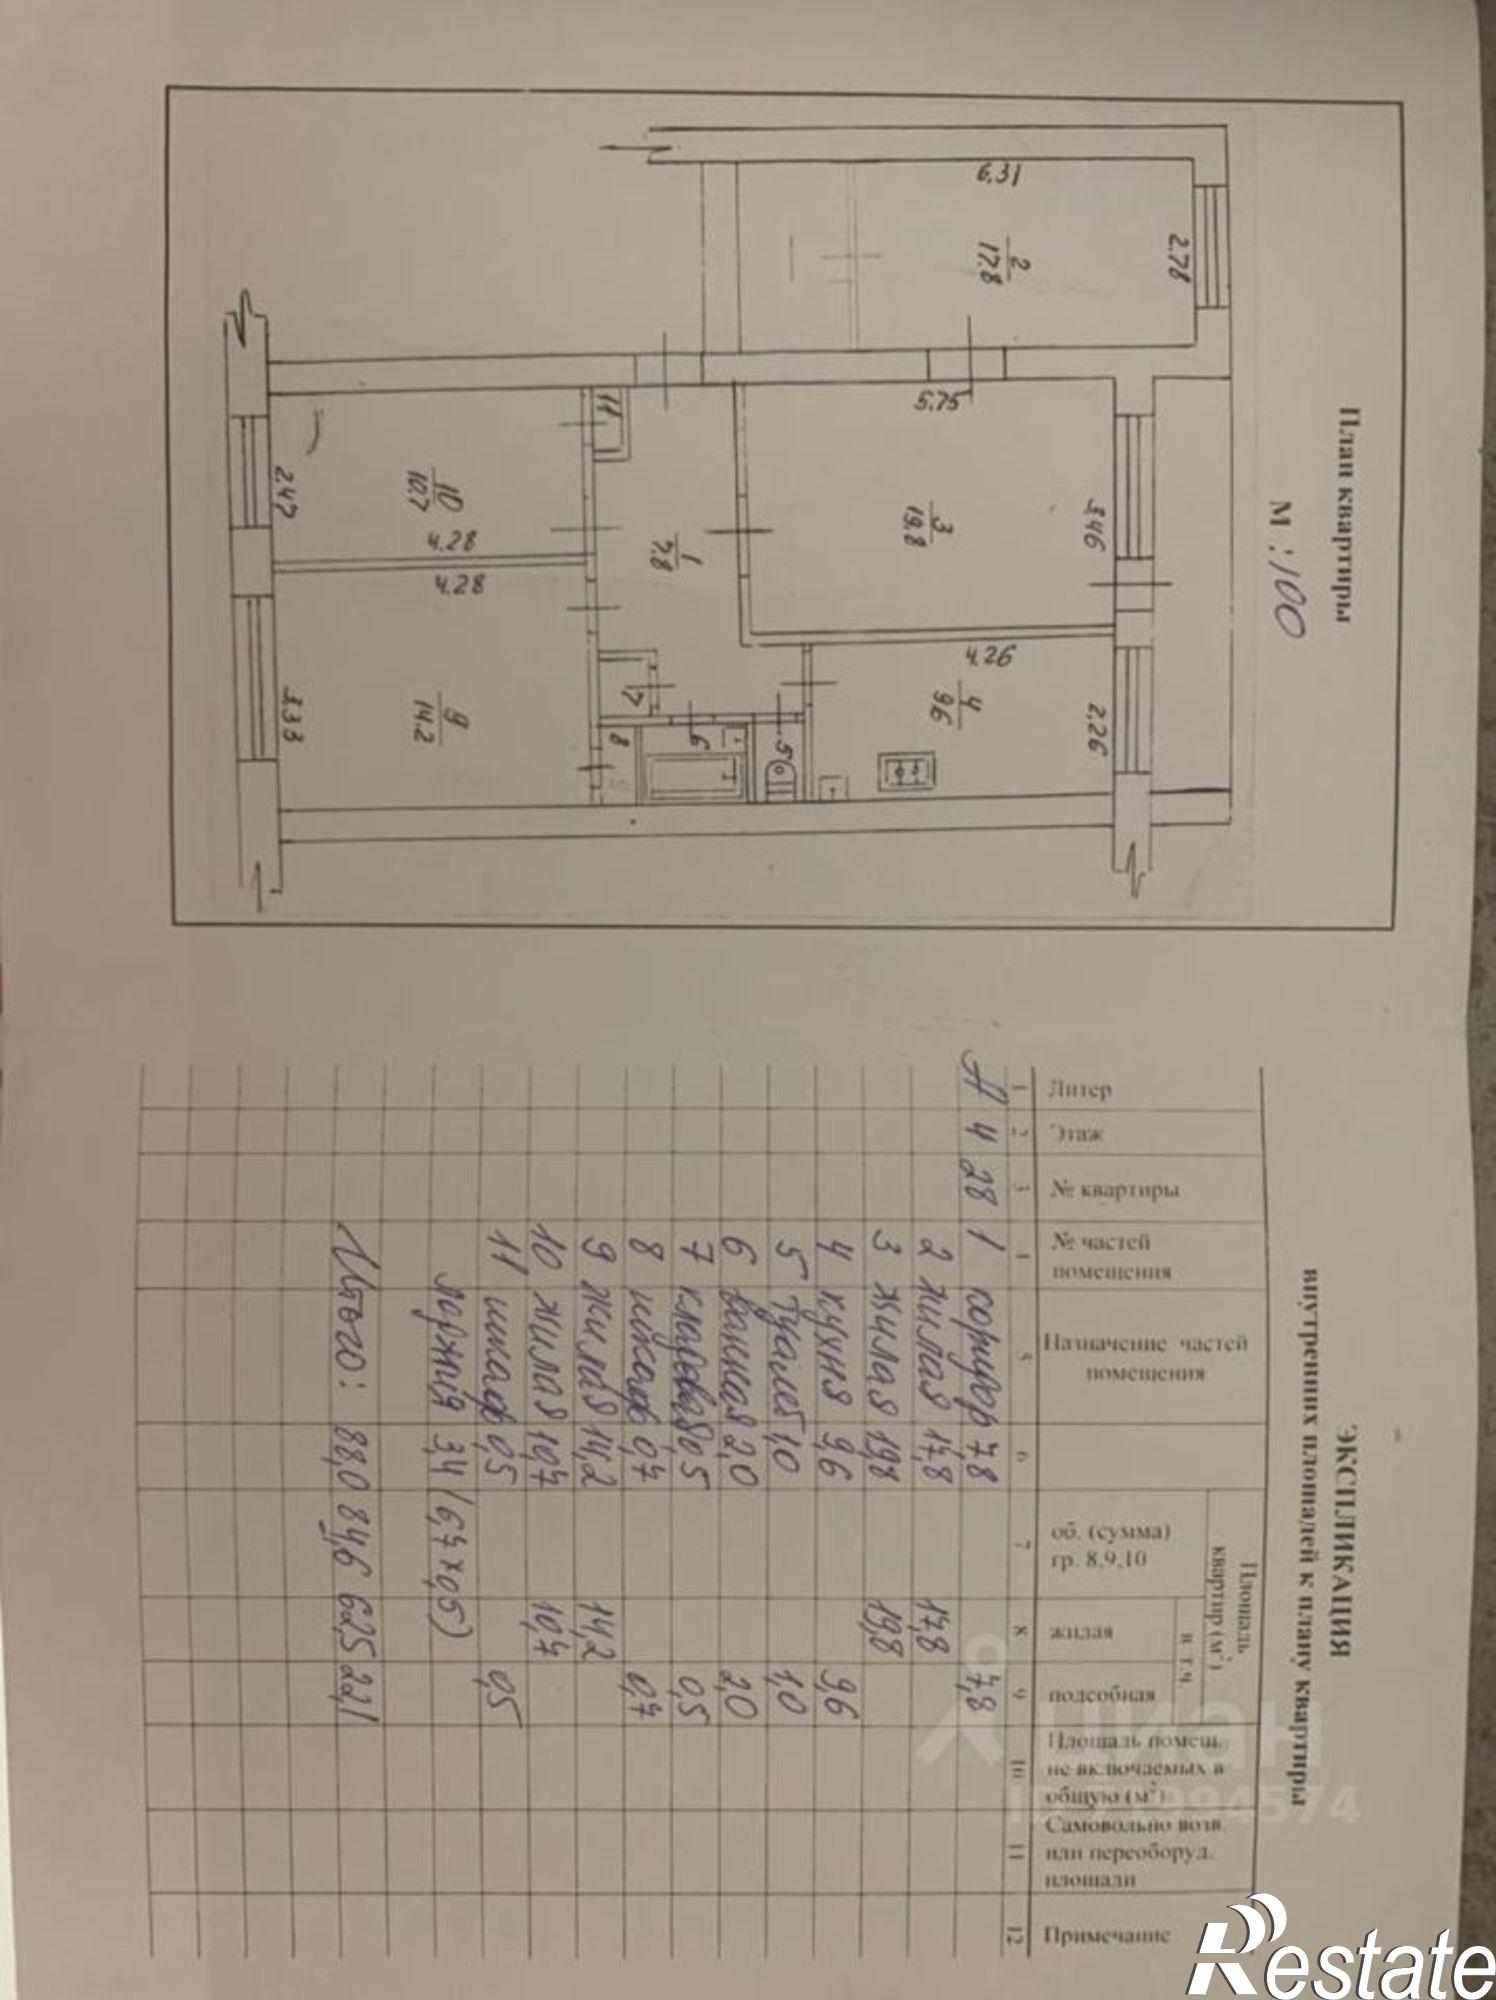 План квартиры
М :100
6.31
2
17.8
2.78
5.75
3
19.8
3.46
4.26
4
9.6
2.26
1
7.8
11
10
10.7
2.47
4.28
4.28
9
14.2
3.33
7
8
6
5
ЭКСПЛИКАЦИЯ
внутренних площадей к плану квартиры
Литер
Этаж
№ квартиры
№ частей помещения
Назначение частей помещения
Площадь квартир (м²)
об. (сумма) гр. 8,9,10
в т.ч
жилая
подсобная
Площадь помещ. не включаемых в общую (м²)
Самовольно возв. или переоборуд. площади
Примечание
1 2 3 4 5 6 7 8 9 10 11 12
А 4 28 1 коридор 7,8 7,8
2 жилая 17,8 17,8
3 жилая 19,8 19,8
4 кухня 9,6 9,6
5 туалет 1,0 1,0
6 ванная 2,0 2,0
7 кладовая 0,5 0,5
8 шкаф 0,7 0,7
9 жилая 14,2 14,2
10 жилая 10,7 10,7
11 шкаф 0,5 0,5
лоджия 3,4 (6,7 х 0,5)
Итого: 88,0 84,6 62,5 22,1
ЦИАН
Restate